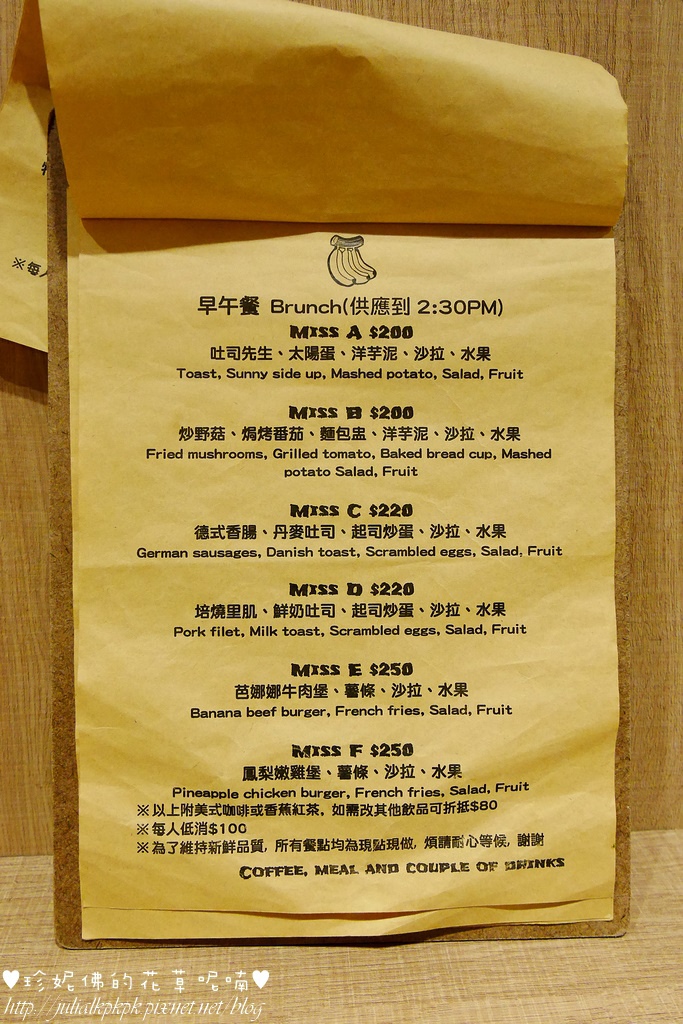 ※每人
早午餐 Brunch(供應到 2:30PM)
MISS A $200
吐司先生、太陽蛋、洋芋泥、沙拉、水果
Toast, Sunny side up, Mashed potato, Salad, Fruit
MISS B $200
炒野菇、焗烤番茄、麵包盅、洋芋泥、沙拉、水果
Fried mushrooms, Grilled tomato, Baked bread cup, Mashed
potato Salad, Fruit
MISS C $220
德式香腸、丹麥吐司、起司炒蛋、沙拉、水果
German sausages, Danish toast, Scrambled eggs, Salad, Fruit
MISS D $220
培燒里肌、鮮奶吐司、起司炒蛋、沙拉、水果
Pork filet, Milk toast, Scrambled eggs, Salad, Fruit
MISS E $250
芭娜娜牛肉堡、薯條、沙拉、水果
Banana beef burger, French fries, Salad, Fruit
MISS F $250
鳳梨嫩雞堡、薯條、沙拉、水果
Pineapple chicken burger, French fries, Salad, Fruit
※以上附美式咖啡或香蕉紅茶, 如需改其他飲品可折抵$80
※每人低消$100
※為了維持新鮮品質, 所有餐點均為現點現做, 煩請耐心等候, 謝謝
COFFEE, MEAL AND COUPLE OF DRINKS
♥珍妮佛的花草呢喃♥
http://julialkpkpk.pixnet.net/blog